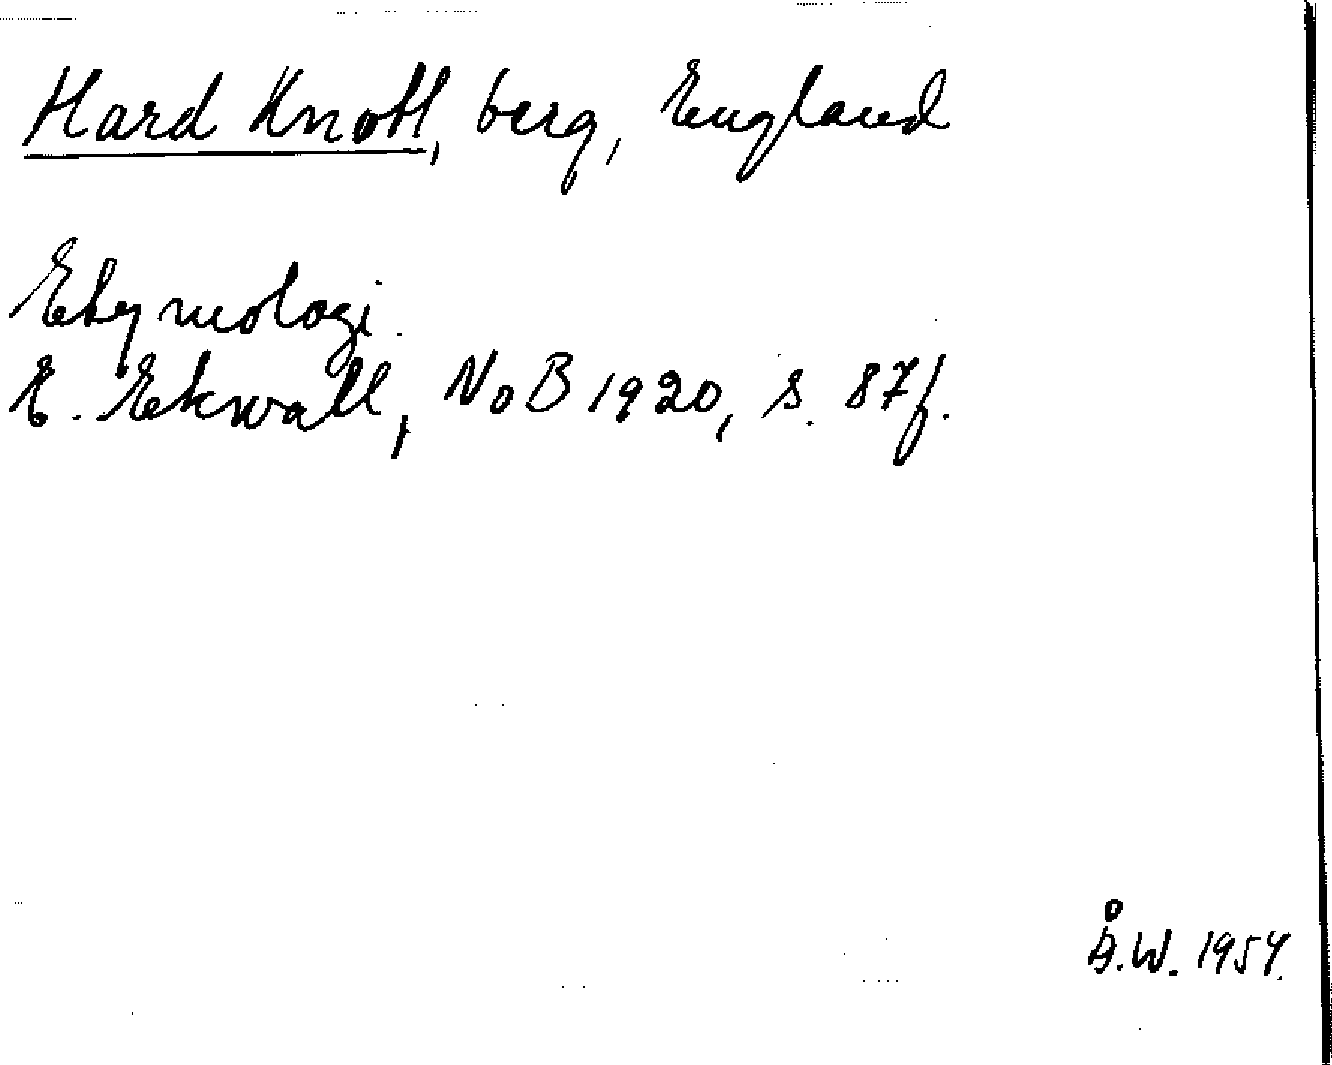 Hard Knott, berg, England
Etymologi.
E. Ekwall, NoB 1920, s. 87f.
Å.W. 1954.